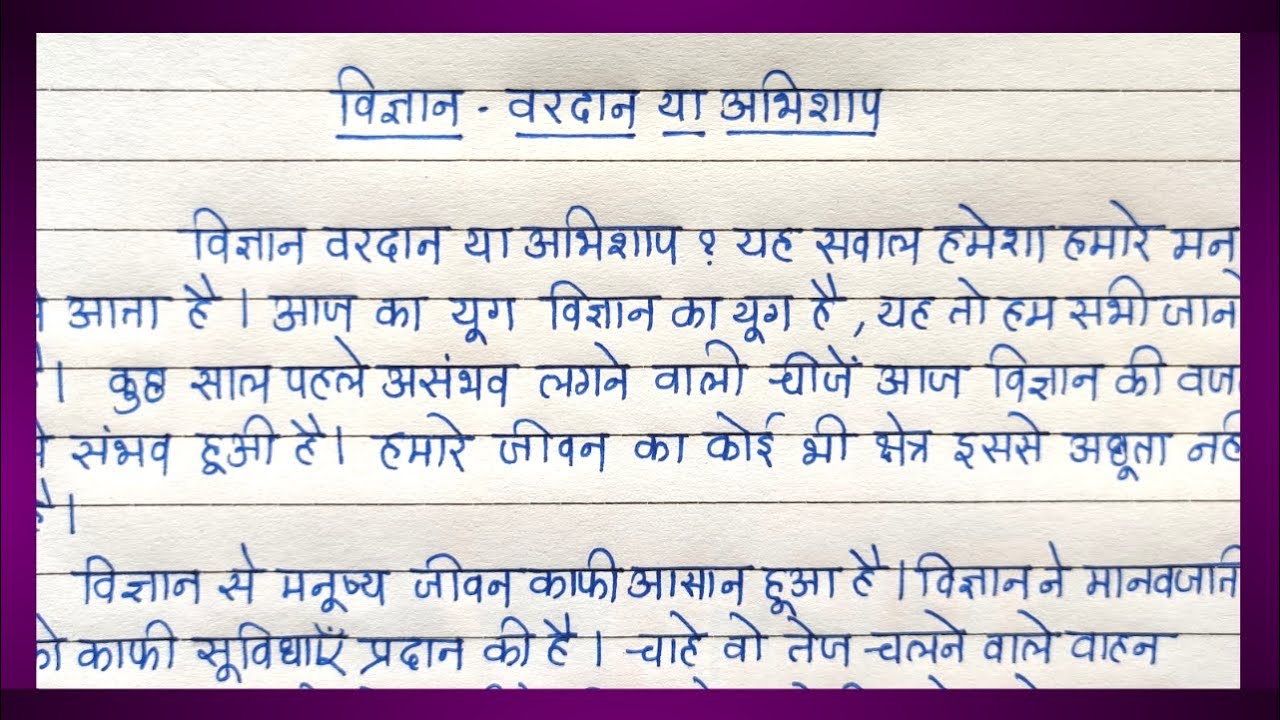 विज्ञान - वरदान या अभिशाप
विज्ञान वरदान या अभिशाप ? यह सवाल हमेशा हमारे मन
आता है । आज का यूग विज्ञान का यूग है , यह तो हम सभी जान
है। कुछ साल पहले असंभव लगने वाली चीजें आज विज्ञान की वज
संभव हूओ है। हमारे जीवन का कोई भी क्षेत्र इससे अछूता नह
है।
विज्ञान से मनूष्य जीवन काफी आसान हूआ है । विज्ञान ने मानवजाति
को काफी सूविधाएँ प्रदान की है । चाहे वो तेज चलने वाले वाहन